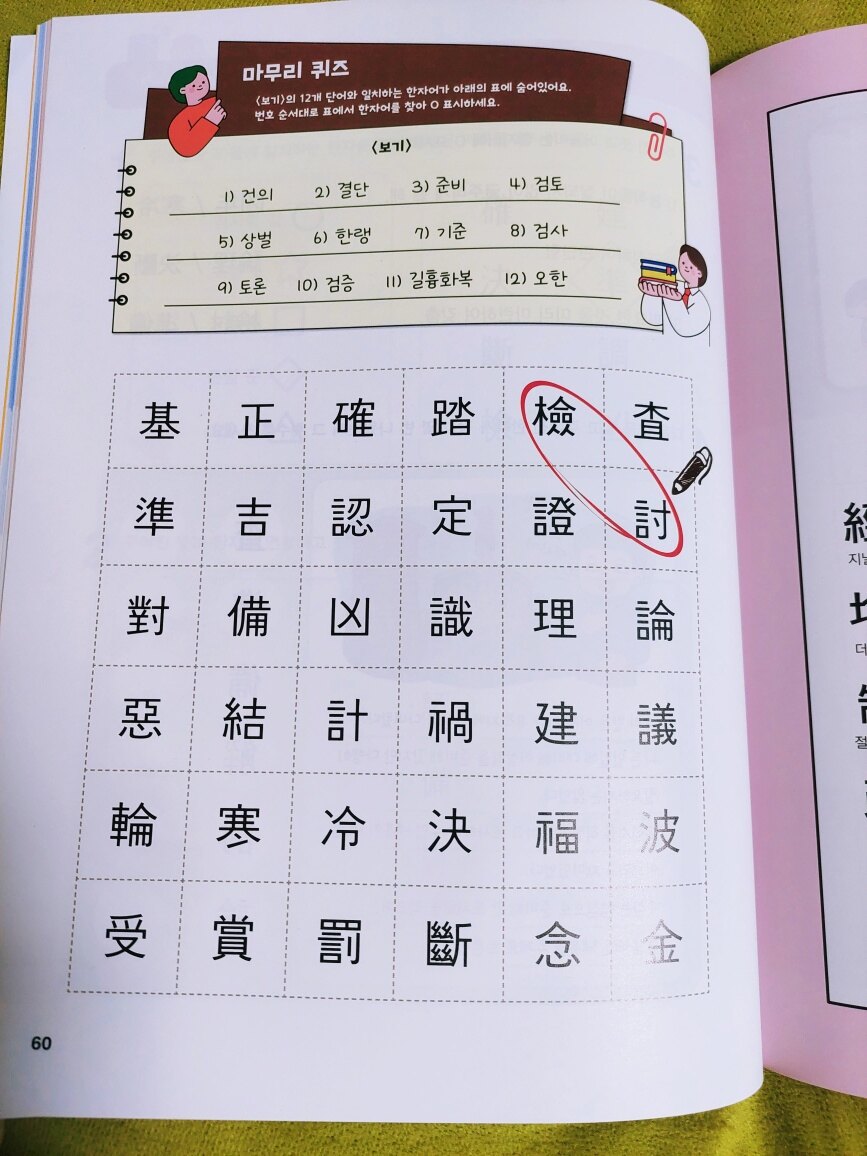 마무리 퀴즈
<보기>의 12개 단어와 일치하는 한자어가 아래의 표에 숨어있어요.
번호 순서대로 표에서 한자어를 찾아 O 표시하세요.
<보기>
1) 건의 2) 결단 3) 준비 4) 검토
5) 상벌 6) 한랭 7) 기준 8) 검사
9) 토론 10) 검증 11) 길흉화복 12) 오한
基 正 確 踏 檢 査
準 吉 認 定 證 討
對 備 凶 識 理 論
惡 結 計 禍 建 議
輪 寒 冷 決 福 波
受 賞 罰 斷 念 金
60
지날
데
절